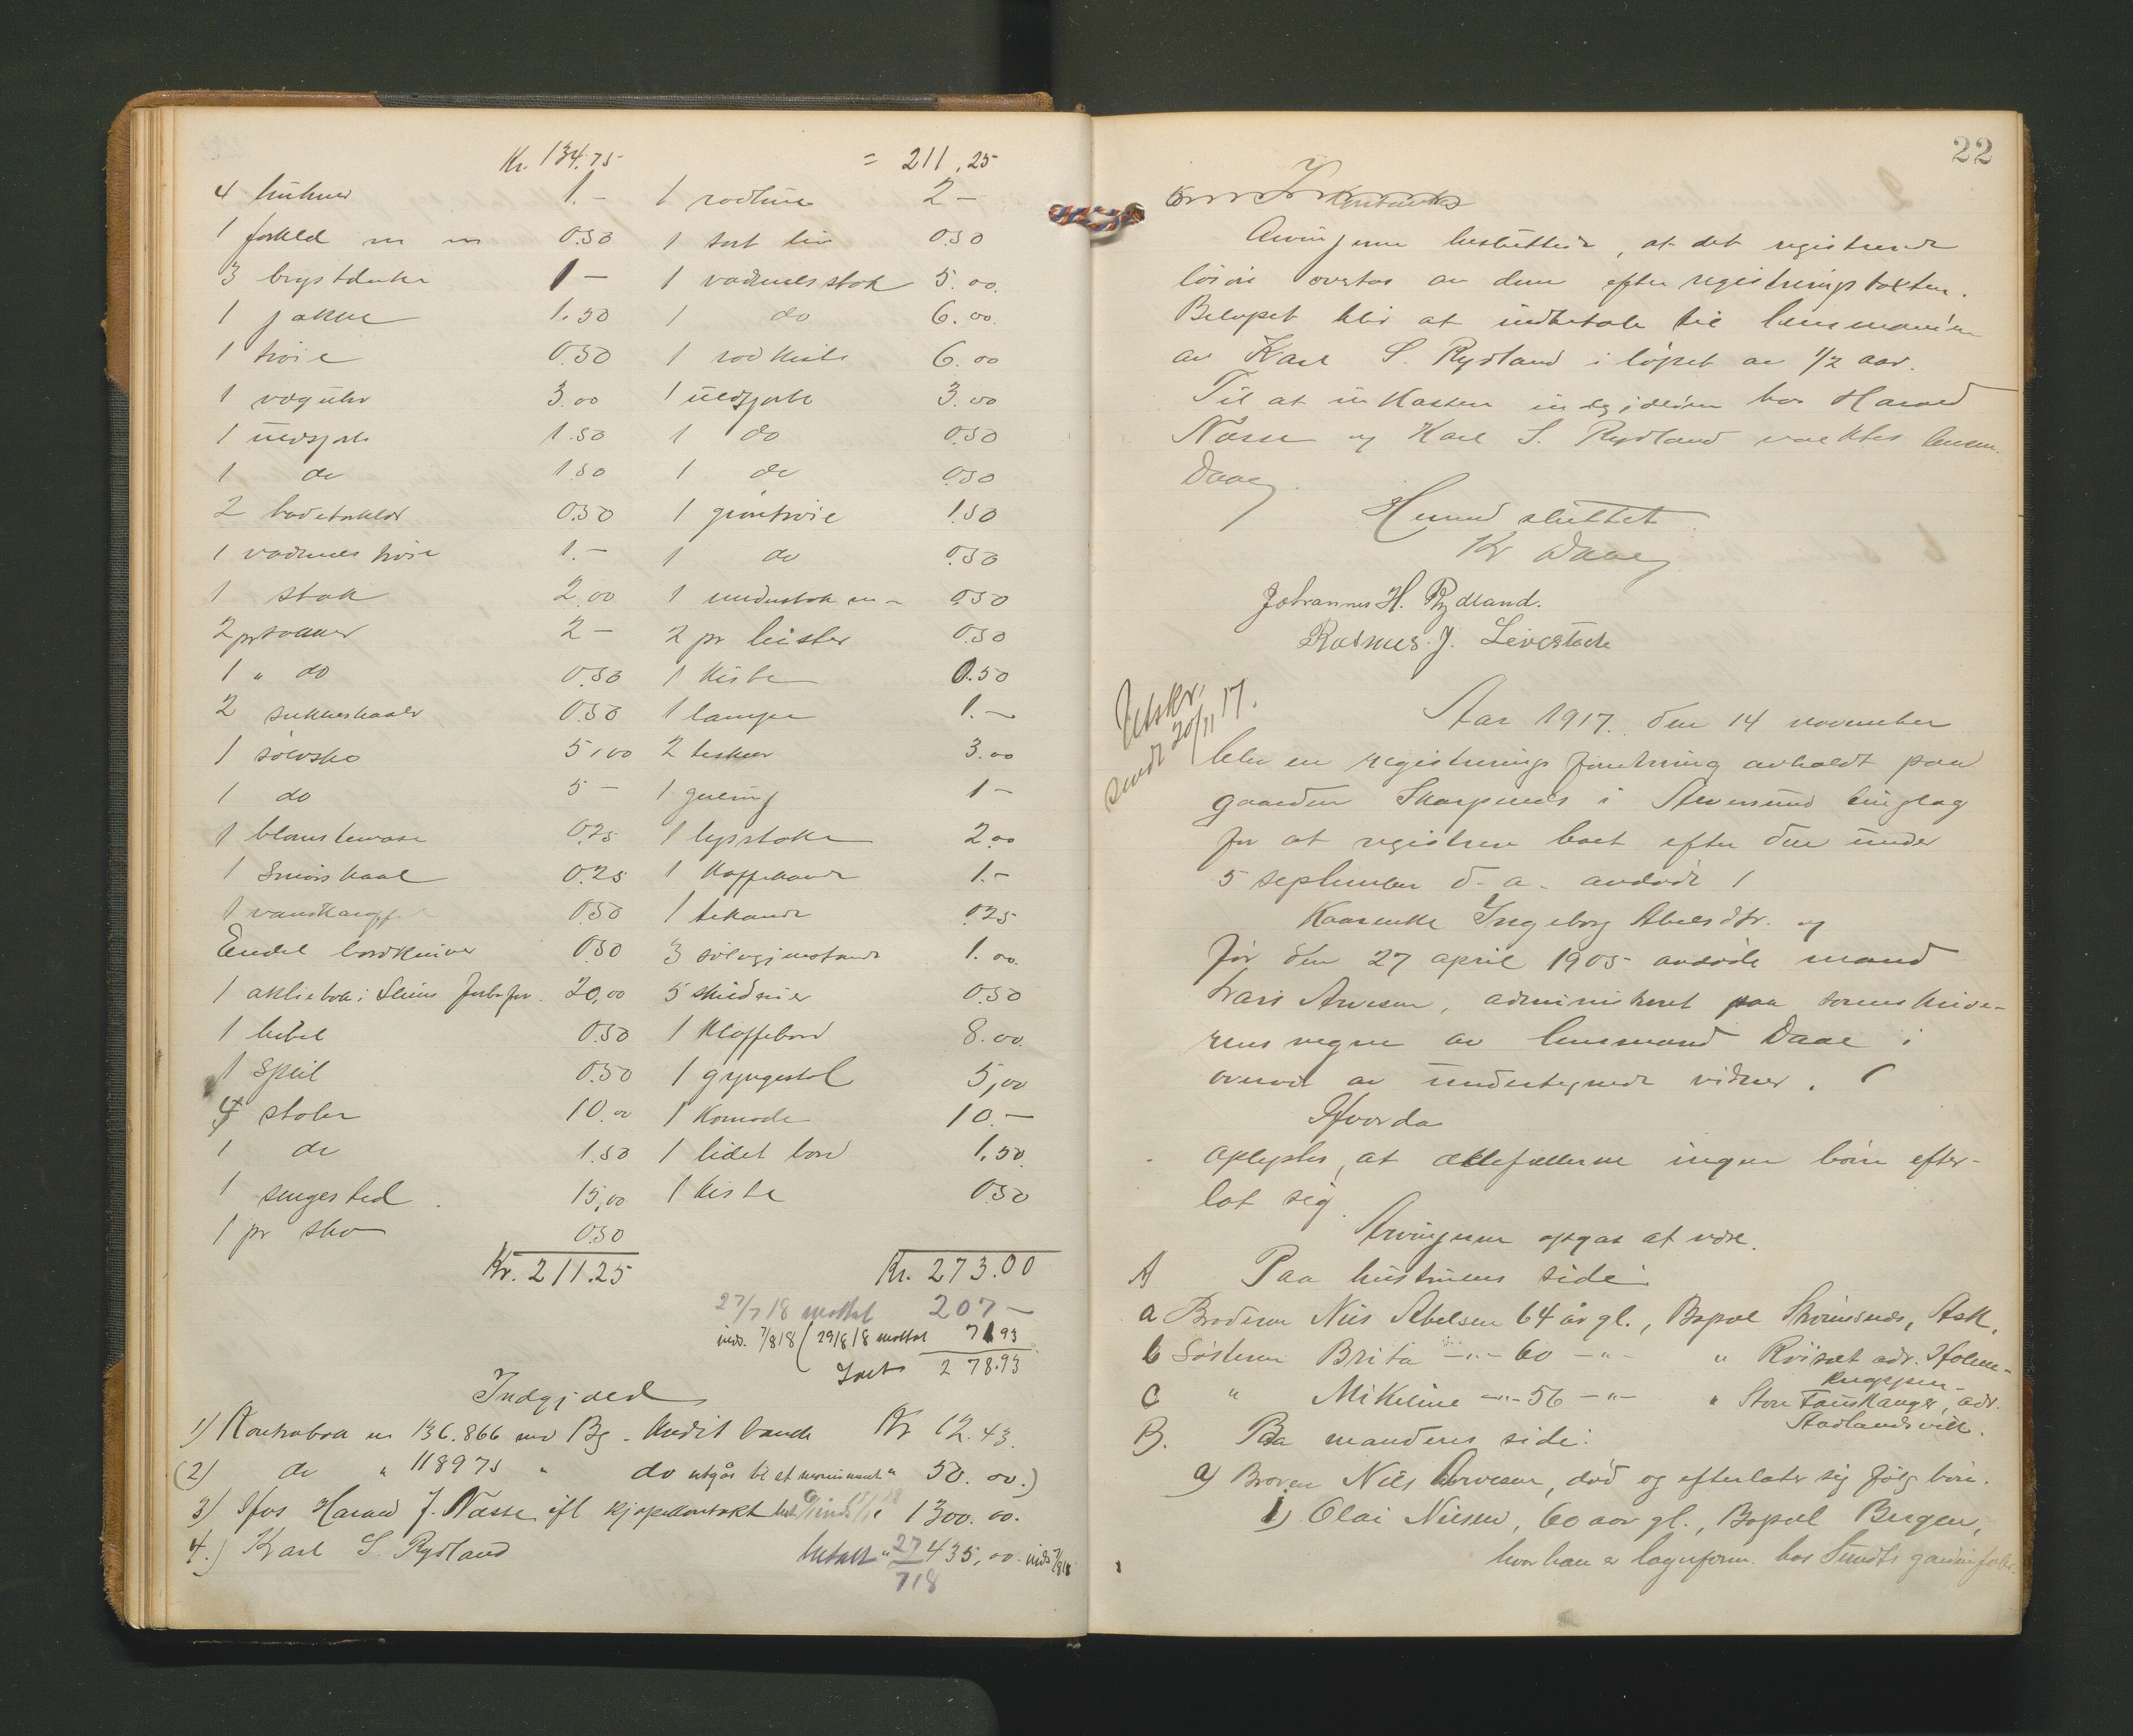 Kr. 134.75 = 211.25
4 1.- 1 2 -
1 forkld 0.50 1 sort liv 0.50
3 brystduker 1 - 1 vadmelsstak 5.00.
1 jakke 1.50 1 do 6.00.
1 trøie 0.50 1 rød kiste 6.00
1 væguhr 3.00 1 uldsjerf 3.00
1 uldsjerf 1.50 1 do 0.50
1 do 1.50 1 do 0.50
2 0.50 1 grøntrøie 1.50
1 vadmels trøie 1.- 1 do 0.50
1 stak 2.00 1 understak 0.50
2 pr sokker 2 - 2 pr leister 0.50
1 " do 0.50 1 kiste 0.50
2 sukkerskaaler 0.50 1 lampe 1.-
1 sølvske 5,00 2 teskeer 3.00
1 do 5 - 1 gulring 1 -
1 blomstervase 0.25 1 lysestake 2.00
1 Smørskaal 0.25 1 Kaffekande 1.-
1 0.50 1 tekande 0.25
Endel bordkniver 0.50 3 1.00.
1 aktiebok i 20,00 5 skilderier 0.50
1 bibel 0.50 1 Klaffebord 8.00.
1 Speil 0.50 1 gyngestol 5,00
4 stoler 10.00 1 Komode 10.-
1 do 1.50 1 lidet bord 1.50.
1 sengested 15,00 1 kiste 0.50
1 pr sko 0.50
Kr. 211.25 Kr. 273.00
27/7 18 mottat 207 -
inds. 7/8 18 ( 29/8 18 mottat 71 93
278.93
Indgjæld
1) Kontrabok nr 136.866 ved Bg. Kredit bank Kr 12.43.
(2) do " 118975 " do utgår til et " 50.00.)
3) Hos Harald J. Næsse ifl kjøpekontrakt 1300.00.
4.) Karl S. Rydland betalt " 27/7 18 435,00. inds 7/8 18
22
Arvingerne besluttede, at det registrerede
løsøre overtas av dem efter registreringstaksten.
Beløpet blir at indbetale til lensmanden
av Karl S. Rydland i løpet av 1/2 aar.
Til at inkassere indgjælden hos Harald
Næsse og Karl S. Rydland valgtes lensm.
Daae.
Hermed sluttet.
Kr Daae
Johannes H. Rydland.
Rasmus J. Sævestad
Utskr.
sendt 20/11 17.
Aar 1917. den 14 november
blev en registrerings forretning avholdt paa
gaarden Skarpenes i tinglag
for at registrere boet efter den under
5 september d. a. avdøde
Ingeborg Abelsdtr. og
før den 27 april 1905 avdøde mand
Lars Arvesen, administreret paa sorenskrive-
rens vegne av lensmand Daae i
overvær av undertegnede vidner.
Hvorda
oplystes, at ektefællerne ingen børn efter-
lot sig.
Arvingerne opgas at være.
A Paa hustruens side:
a Broderen Nils Abelsen 64 år gl., Bopæl Strømsnes, Ask,
b Søsteren Brita -"- 60 -"- " adr. Holme-
knappen
c " Mikeline -"- 56 -"- " Store Fauskanger, adr.
Stadlandsvik.
B. Paa mandens side:
a) Broren Nils Arvesen, død og efterlater sig følg. børn.
1) Olai Nilsen, 60 aar gl., Bopæl Bergen,
hvor han er lagerform. hos Sundts